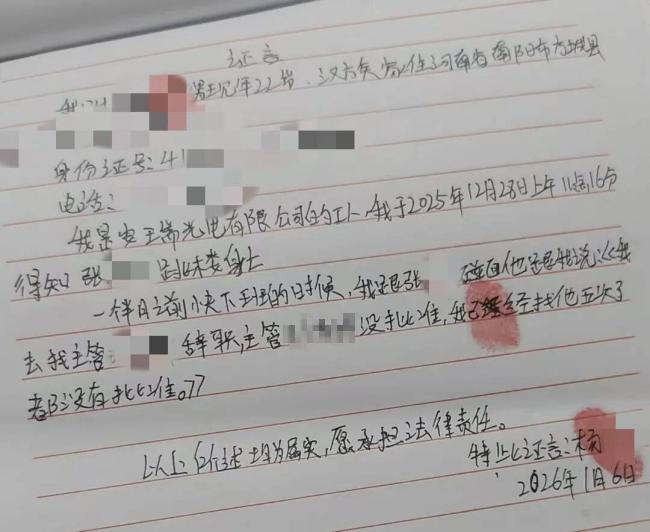 证言
男 现年22岁、汉族 家住河南省南阳市方城县
身份证号:41
电话:
我是安 光电有限公司的工人、我于2025年12月28日上午11点16分
得知 张 跳楼身亡
一件日之前 快下班的时候、我跟张 碰面他跟我说:《我
去找主管 辞职,主管 没批准,我已经找他五次了
都没有批准。"
以上所述均为属实,愿承担法律责任。
特此证言:杨
2026年1月6日